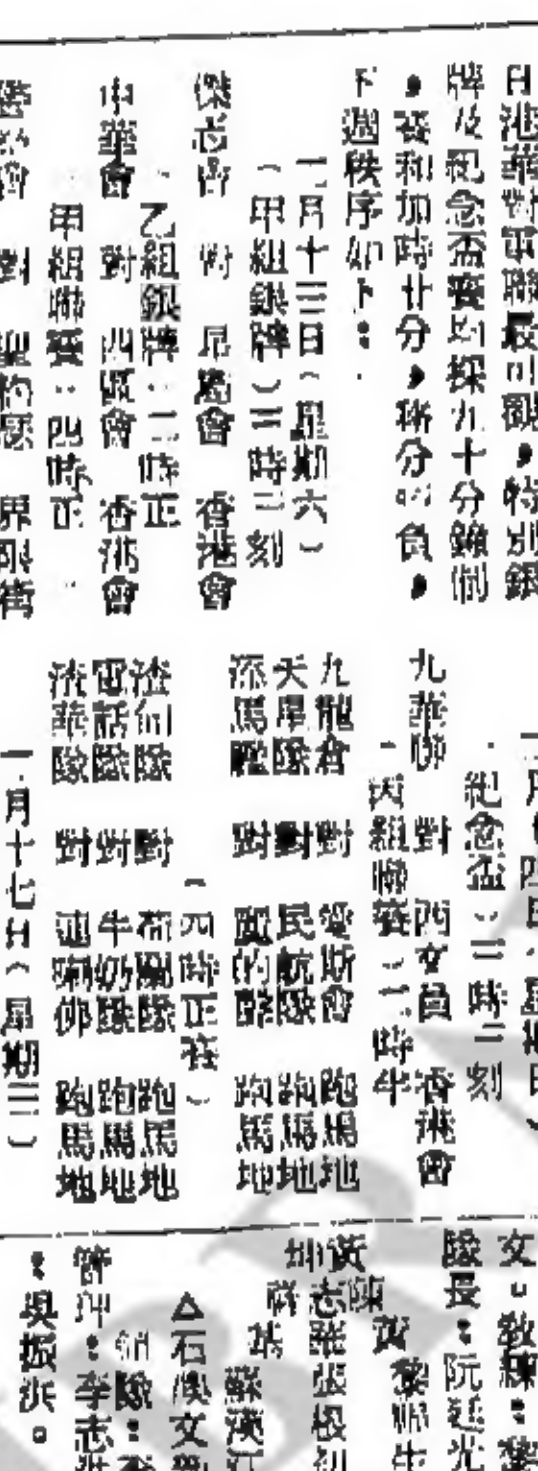 日港華對軍聯最可觀，特別銀
牌及紀念盃賽均採九十分鐘制
，賽和加時廿分，
下週秩序如下：
一月十三日（星期六）
（甲組銀牌）三時三刻
傑志會 對 會 香港會
乙組銀牌：二時正
中華會 對 四區會 香港會
甲組聯賽：四時正
警察會 對 聖約瑟 界限街
一月十四日（星期日）
紀念盃：三時三刻
九華聯 對 西文員 香港會
丙組聯賽：二時半
九龍倉 對 愛斯會 跑馬地
天星隊 對 民航隊 跑馬地
添馬艦 對 跑馬地
（四時正在）
渣甸隊 對 荷蘭隊 跑馬地
電話隊 對 牛奶隊 跑馬地
渣華隊 對 跑馬地
一月十七日（星期三）
文。教練：黎
隊長：阮 光
黎 生
黃陳
志 張根
坤
蘇漢江
△石硤文
領隊：李
管理：李志
：吳振洪。